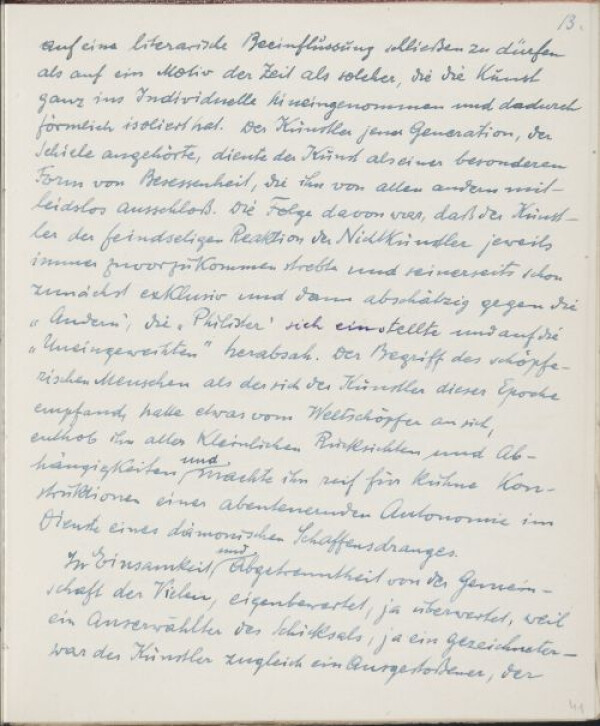 13.
auf eine literarische Beeinflussung schließen zu dürfen
als auf ein Motiv der Zeit als solcher, die die Kunst
ganz ins Individuelle hineingenommen und dadurch
förmlich isoliert hat. Der Künstler jener Generation, der
Schiele angehörte, diente der Kunst als einer besonderen
Form von Besessenheit, die ihn von allen andern mit-
leidslos ausschloß. Die Folge davon war, daß der Künst-
ler der feindseligen Reaktion der Nichtkünstler jeweils
immer zuvorzukommen strebte und seinerseits schon
zunächst exklusiv und dann abschätzig gegen die
„Andern', die „Philister' sich einstellte und auf die
„Uneingeweihten" herabsah. Der Begriff des schöpfe-
rischen Menschen als der sich der Künstler dieser Epoche
empfand, hatte etwas vom Weltschöpfer an sich,
enthob ihn aller kleinlichen Rücksichten und Ab-
hängigkeiten und machte ihn reif für kühne Kon-
struktionen einer abenteuernden Autonomie im
Dienste eines dämonischen Schaffensdranges.
In Einsamkeit und Abgetrenntheit von der Gemein-
schaft der Vielen, eigenbewertet, ja überwertet, weil
ein Auserwählter des Schicksals, ja ein Gezeichneter –
war der Künstler zugleich ein Ausgestoßener, der
41